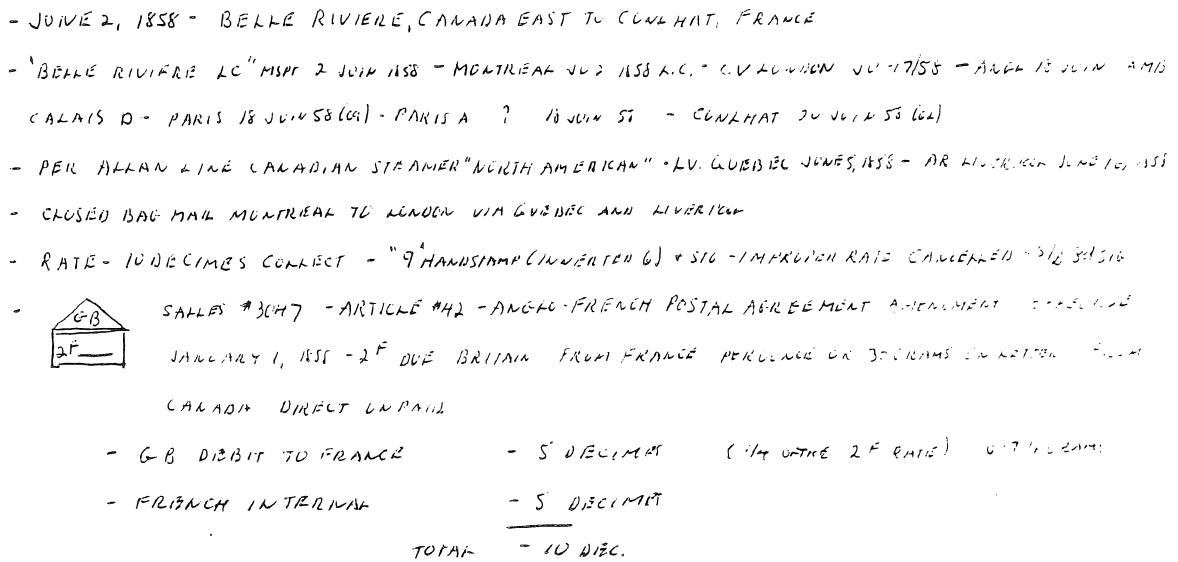 - JUNE 2, 1858 - BELLE RIVIERE, CANADA EAST TO CUNLHAT, FRANCE
- "BELLE RIVIERE LC" MSPT 2 JUIN 1858 - MONTREAL JU 2 1858 L.C. - LV LONDON JU-17/58 - ANGL 18 JUIN AMB
CALAIS D - PARIS 18 JUIN 58 - PARIS A ? 18 JUIN 58 - CUNLHAT 20 JUIN 58
- PER ALLAN LINE CANADIAN STEAMER "NORTH AMERICAN" - LV. QUEBEC JUNE 5, 1858 - AR LIVERPOOL JUNE 16, 1858
- CLOSED BAG MAIL MONTREAL TO LONDON VIA QUEBEC AND LIVERPOOL
- RATE - 10 DECIMES COLLECT - "9" HANDSTAMP (INVERTED 6) & SIG - IMPROPER RATE CANCELLED
- GB SALLES #3047 - ARTICLE #42 - ANGLO-FRENCH POSTAL AGREEMENT AMENDMENT EFFECTIVE
2F JANUARY 1, 1858 - 2F DUE BRITAIN FROM FRANCE PER OUNCE OR 30 GRAMS ON LETTER FROM
CANADA DIRECT UNPAID
- GB DEBIT TO FRANCE - 5 DECIMES (1/4 OF THE 2F RATE)
- FRENCH INTERNAL - 5 DECIMES
TOTAL - 10 DEC.